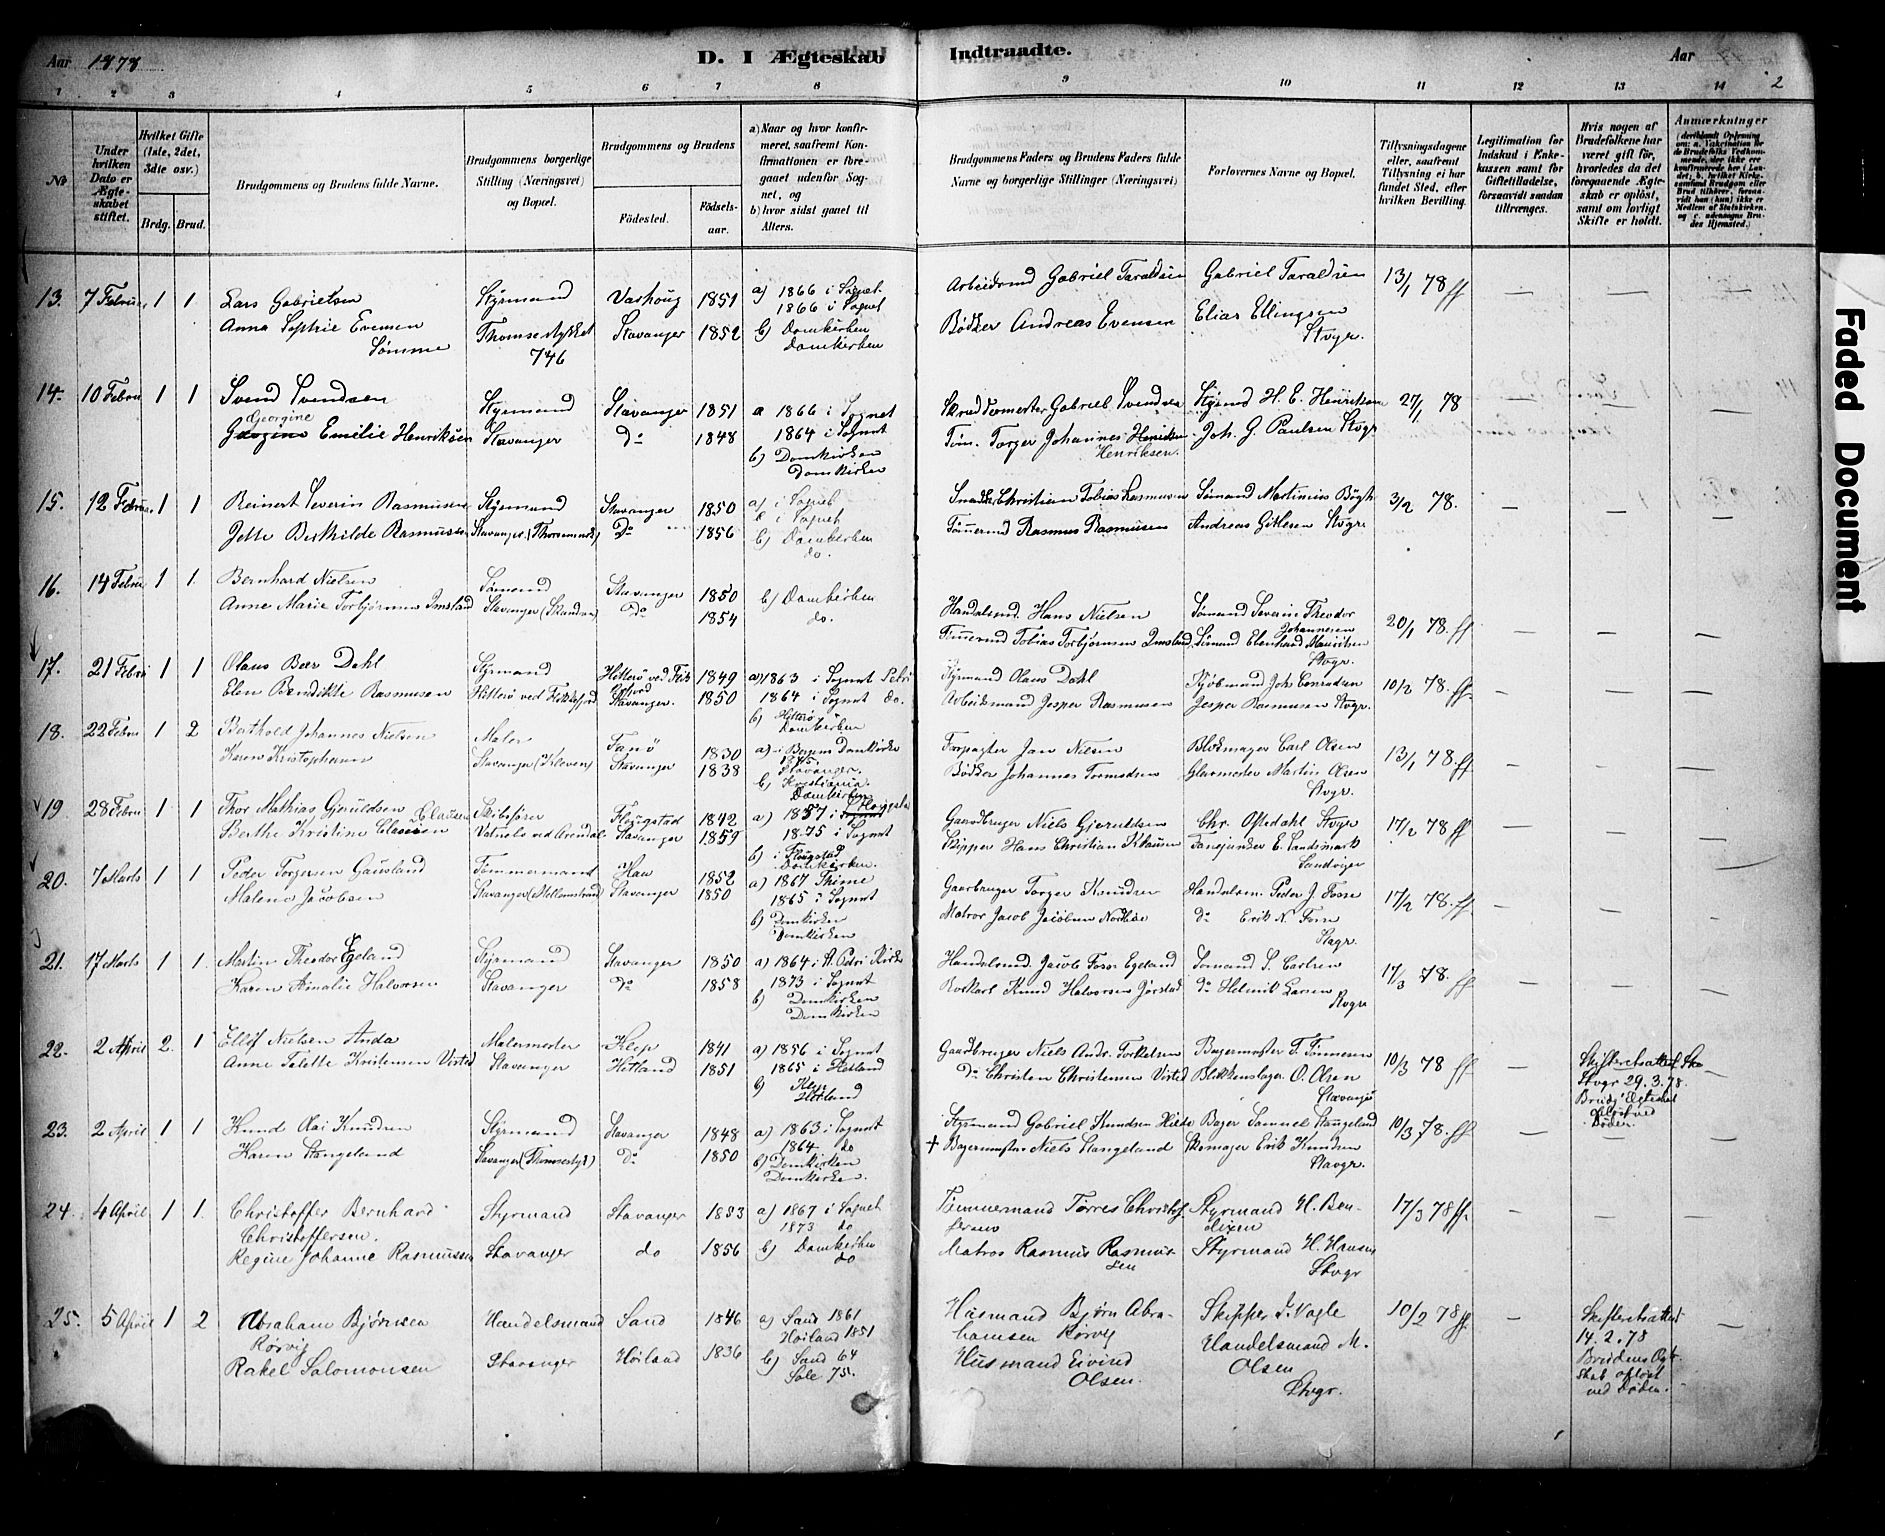 Aar 1878
D. I Ægteskab Indtraadte.
Aar
2
1 2 3 4 5 6 7 8 9 10 11 12 13 14
No
Under hvilken Dato er Ægteskabet stiftet.
Hvilket Gifte (1ste, 2det, 3die osv.)
Brdg. Brud.
Brudgommens og Brudens fulde Navne.
Brudgommens borgerlige Stilling (Næringsvei) og Bopæl.
Brudgommens og Brudens
Fødested.
Fødselsaar.
a) Naar og hvor konfirmeret, saafremt Konfirmationen er foregaaet udenfor Sognet, og
b) hvor sidst gaaet til Alters.
Brudgommens Faders og Brudens Faders fulde Navne og borgerlige Stillinger (Næringsvei)
Forlovernes Navne og Bopæl.
Tillysningsdagene eller, saafremt Tillysning ei har fundet Sted, efter hvilken Bevilling.
Legitimation for Indskud i Enkekassen samt for Giftetilladelse, forsaavidt saadan tiltrænges.
Hvis nogen af Brudefolkene har været gift før, hvorledes da det foregaaende Ægteskab er opløst, samt om lovligt Skifte er holdt.
Anmærkninger
13. 7 Februar 1 1 Lars Gabrielsen Styrmand Varhoug 1851 a) 1866 i Sognet Arbeidsmd Gabriel Taraldsen Gabriel Taraldsen 13/1 78 ff — — —
Anna Sophie Evensen Sømme Thomsestykket 746 Stavanger 1852 1866 i Sognet b) Domkirken Domkirken Bødker Andreas Evensen Elias Ellingsen Stvgr.
14. 10 Febru 1 1 Svend Svendsen Styrmand Stavanger 1851 a 1866 i Sognet Gabriel Svendsen Styrmd H. E. Henriksen 27/1 78
Georgine Emilie Henriksen Stavanger Do 1848 1864 i Sognet b) Domkirken Domkirken Tøm. Torger Johannes Henriksen. Joh. G. Paulsen Stvgr
15. 12 Februar 1 1 Reinert Severin Rasmussen Styrmand Stavanger 1850 a) i Sognet Christian Tobias Rasmussen Sømand Martinius Bøgh 3/2 78. — — —
Jette Bethilde Rasmussen Stavanger Do 1856 i Sognet b) Domkirken do. Tømmermd Rasmus Rasmussen Andreas Gitlesen Stvgr.
16. 14 Febru 1 1. Bernhard Nielsen Sømand Stavanger 1850 b) Domkirken Handelsmd. Hans Nielsen Sømand Severin Theodor Johannesen 20/1 78. ff — — —
Anne Marie Torbjørnsen Imsland Stavanger Do 1854 do. Tømmermd Tobias Torbjørnsen Imsland Sømand Mauritsen Stvgr.
17. 21 Febru 1 1 Olaus Beer Dahl Styrmand Hitterø ved 1849 a) 1863 i Sognet Petri Styrmand Olaus Dahl Kjøbmand Joh. Conradsen 10/2 78. ff — — —
Elen Bendikte Rasmussen Hitterø ved Stavanger. 1850 1864 i Sognet do. b) Hitterø Domkirken Arbeidsmand Jesper Rasmussen Jesper Rasmussen Stvgr.
18. 22 Febru 1 2 Berthold Johannes Nielsen Maler Fanø 1830 a) i Bergens Domkirke Forpagter Jan Nielsen Blokmager Carl Olsen 13/1 78. ff — — —
Karen Kristophersen Stavanger (Kleven) Stavanger 1838 Stavanger. b) Kristiania Domkirken Bødker Johannes Tormodsen Glarmester Martin Olsen Stvgr.
19 28 Febru 1 1 Thor Mathias Gjeruldsen Skibsfører 1842 a) 1857 i Gaardbruger Niels Gjeruldsen Chr. Oftedahl Stvgr 17/2 78 ff — — —
Berthe Kristine Clausen ved Arendal Stavanger 1859 1875 i Sognet b) i Domkirken. Skipper Hans Christian Klausen E. Landsmark Sandviger
20. 7 Marts 1 1 Peder Torgersen Gausland Tømmermand Haa 1852 a) 1867 Thime Gaarbruger Torger Knudsen Handelsm. Peder J. Fosse 17/2 78. ff — — —
Malene Jacobsen Stavanger Stavanger 1850 1865 i Sognet b) Domkirken Domkirken Matros Jacob Jacobsen do Erik N. Fosse Stvgr.
21. 17 Marts 1 1. Martin Theodor Egeland Styrmand Stavanger 1850 a) 1864 i St. Petri Kirke Handelsmd. Jacob Egeland Sømand S. Carlsen 17/3 78. ff — — —
Karen Amalie Halvorsen Stavanger do 1858 1873 i Sognet b) Domkirken Domkirken Knud Halvorsen Jørstad do Helmik Larsen Stvgr
22. 2 April 2. 1 Ellef Nielsen Anda Malermester Klep 1841 a) 1856 i Sognet Gaardbruger Niels Andr. Torkelsen Bagermester T. Tønnesen 10/3 78 ff — Skifteretsattest Stvgr 29.3.78. Brudg. Ægteskab opløst ved Døden. —
Anne Kristensen Stavanger Hetland 1851 1865 i Hetland b) Klep Hetland do Christen Christensen Blikkenslager O. Olsen Stavanger
23. 2 April 1 1 Knud Knudsen Styrmand Stavanger 1848 a) 1863 i Sognet Styrmand Gabriel Knudsen Bager Samuel Stangeland 10/3 78. ff — — —
Karen Stangeland Stavanger (Thomsestyk) do 1850 1864 do b) Domkirken Domkirken. + Bagermester Niels Stangeland Skomager Erik Knudsen Stavgr.
24. 4 April 1 1. Christoffer Bernhard Christoffersen. Styrmand Stavanger 1853 a) 1867 i Sognet Tømmermand Tørres Christoffersens Styrmand H. Bendixen 17/3 78 ff. — — —
Regine Johanne Rasmussen Stavanger do 1856 1873 do b) Domkirken do Matros Rasmus Rasmussen Styrmand H. Hansen Stvgr
25. 5 April 1 2 Abraham Bjørnsen Rørvig Handelsmand Sand 1846 a) Sand 1861 Husmand Bjørn Abrahamsen Rørvig Skipper J. Vagle 10/2 78 ff — Skifteretsattest 14.2.78 Brudens Ægteskab opløst ved Døden. —
Rakel Salomonsen Stavanger Høiland 1836 Høiland 1851 b) Sand 64 Sole 75. Husmand Eivind Olsen. Handelsmand M. Olsen Stvgr.
Faded Document